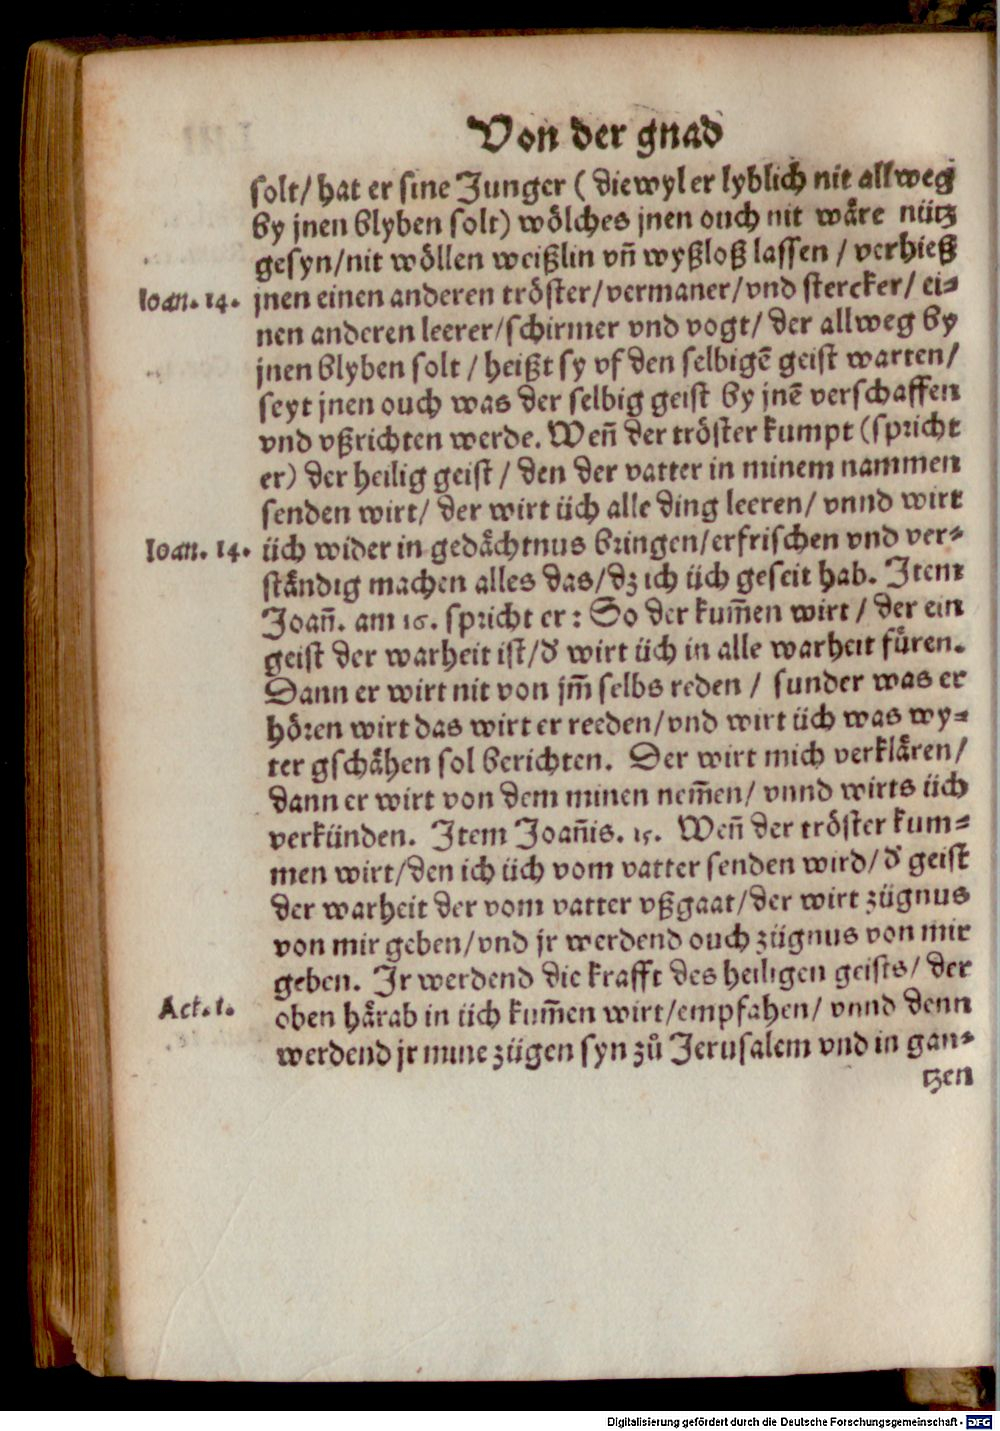 Von der gnad
solt/ hat er sine Junger ( diewyl er lyblich nit allweg
by jnen blyben solt) wölches jnen ouch nit wåre nütz
gesyn/nit wöllen weißlin vñ wyßloß lassen / verhieß
Ioan. 14. jnen einen anderen tröster/vermaner/vnd stercker/ ei=
nen anderen leerer/schirmer vnd vogt/ der allweg by
jnen blyben solt / heißt sy vf den selbigē geist warten/
seyt jnen ouch was der selbig geist by jnē verschaffen
vnd vßrichten werde. Weñ der tröster kumpt (spricht
er) der heilig geist / den der vatter in minem nammen
senden wirt/ der wirt üch alle ding leeren/ vnnd wirt
Ioan. 14. üch wider in gedåchtnus bringen/erfrischen vnd ver=
ståndig machen alles das/dz ich üch geseit hab. Item
Joañ. am 16. spricht er: So der kum̃en wirt / der ein
geist der warheit ist/d' wirt üch in alle warheit fůren.
Dann er wirt nit von jm̃ selbs reden / sunder was er
hören wirt das wirt er reeden/vnd wirt üch was wy=
ter gschåhen sol berichten. Der wirt mich verklåren/
dann er wirt von dem minen nem̃en/ vnnd wirts üch
verkünden. Item Joañis. 15. Weñ der tröster kum=
men wirt/den ich üch vom vatter senden wird/d' geist
der warheit der vom vatter vßgaat/der wirt zügnus
von mir geben/vnd jr werdend ouch zügnus von mir
geben. Jr werdend die krafft des heiligen geists/ der
Act. 1. oben hårab in üch kum̃en wirt/empfahen/ vnnd denn
werdend jr mine zügen syn zů Jerusalem vnd in gan=
tzen
Digitalisierung gefördert durch die Deutsche Forschungsgemeinschaft - DFG